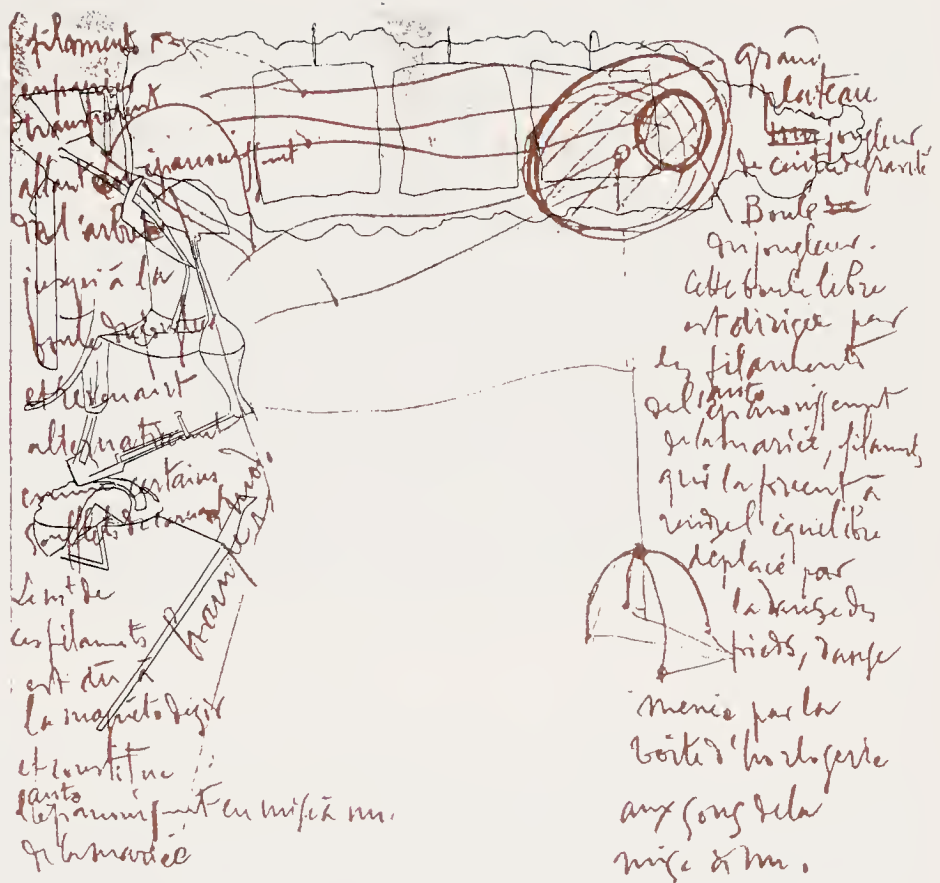 filaments
en papier
transparent
allant épanouissant
de l'arbre
jusqu'à la
boule
et revenant
alternativement
comme certains
soufflets de
Le mt de
ces filaments
est dû à
la magnéto désir
et constitue
auto
l'épanouissmt en mise à nu.
de la mariée
grand
plateau.
jongleur
de centre de gravité
Boule
du jongleur.
cette boule libre
est dirigée par
les filaments
auto
de l'épanouissement
de la mariée, filaments
qui la forcent à
l'équilibre
déplacé par
la danse des
pieds, danse
menée par la
boîte d'horlogerie
aux sons de la
mise à nu.